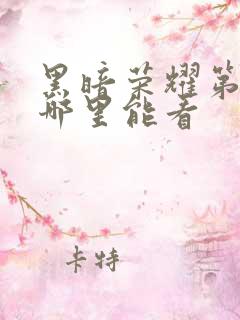 黑暗荣耀第
哪里能看
卡特